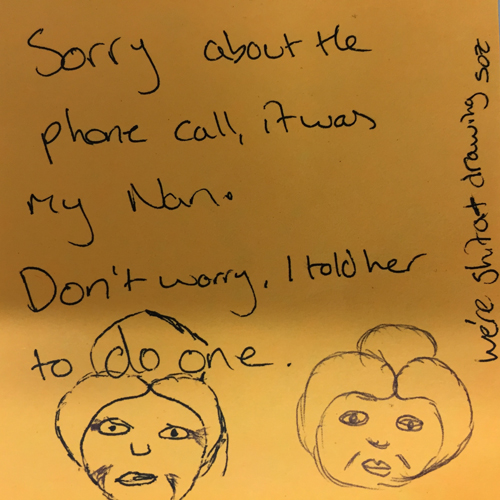 Sorry about the
phone call, it was
my Nan.
Don't worry, I told her
to do one.
we're shit at drawing soz